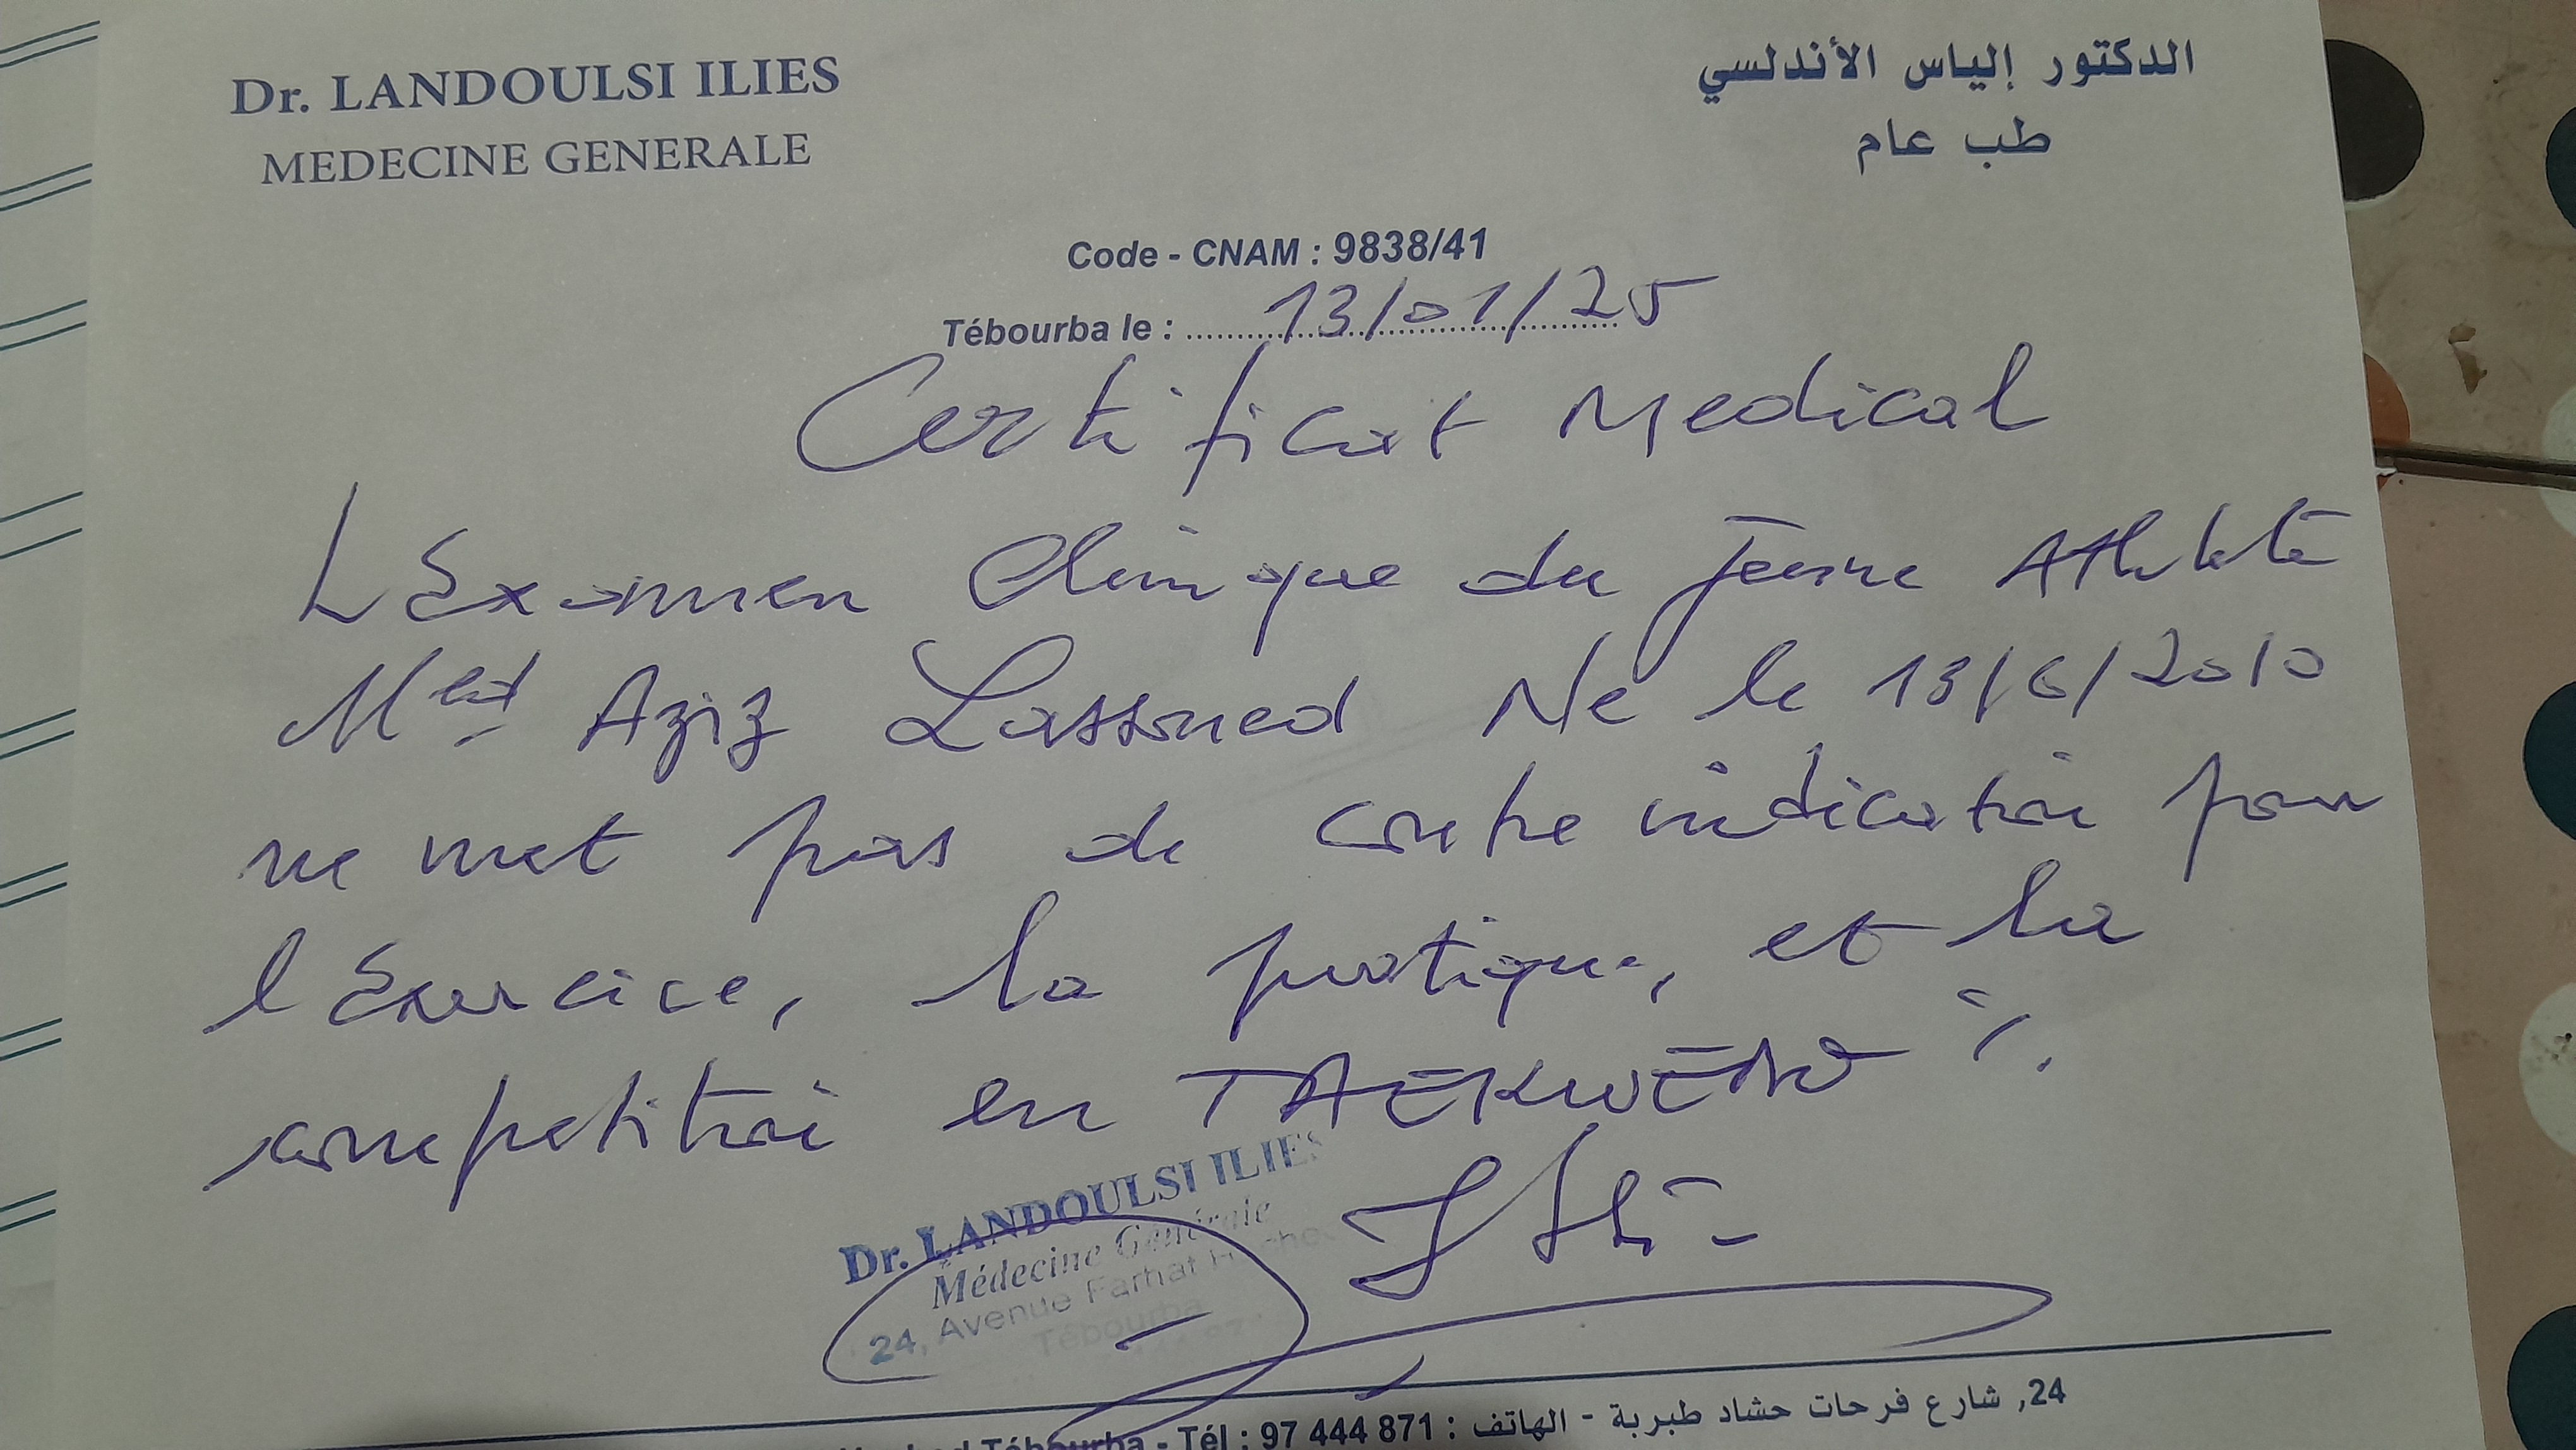 Dr. LANDOULSI ILIES
MEDECINE GENERALE
الدكتور إلياس الأندلسي
طب عام
Code - CNAM : 9838/41
Tébourba le : 13/01/25
Certificat Medical
L'Examen Clinique du jeune Athlète
Med Aziz Lassoued Né le 13/6/2010
ne met pas de contre indication pour
l'Exercice, la pratique, et la
competition en TAEKWENDO
Dr. LANDOULSI ILIES
Médecine Générale
24, Avenue Farhat
Tébourba
24, شارع فرحات حشاد طبربة - الهاتف : 871 444 97
Tébourba - Tél : 97 444 871